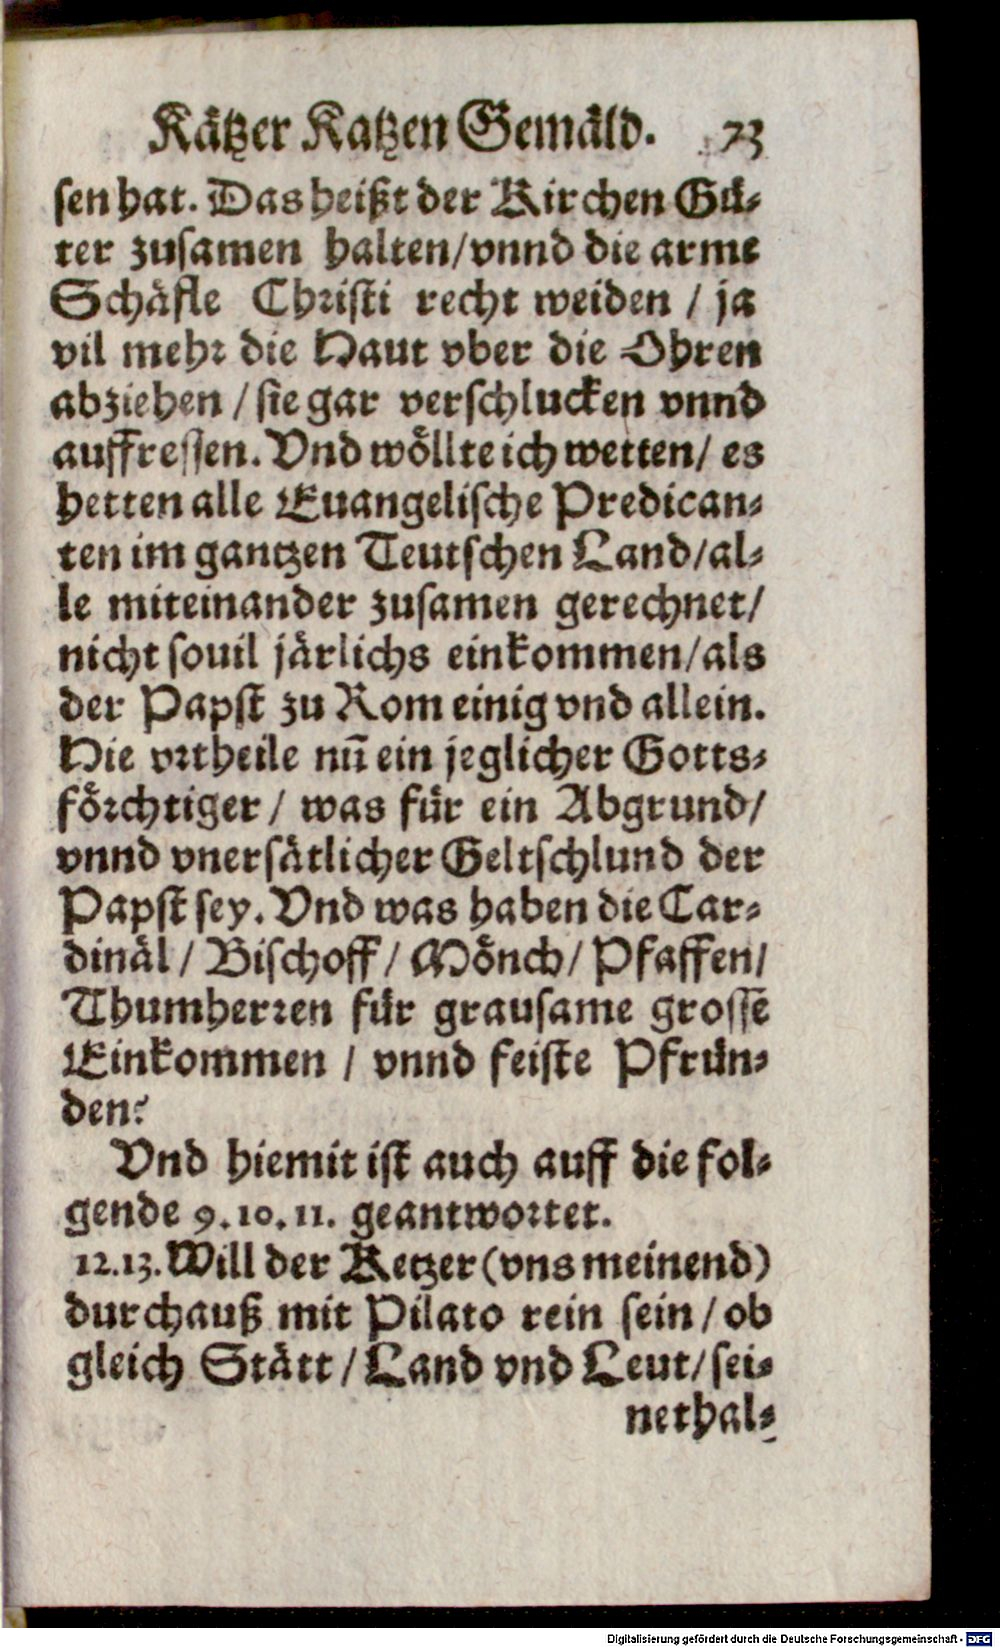 Kätzer Katzen Gemäld. 73
sen hat. Das heißt der Kirchen Gü-
ter zusamen halten/vnnd die arme
Schäfle Christi recht weiden / ja
vil mehr die Haut vber die Ohren
abziehen / sie gar verschlucken vnnd
auffressen. Vnd wöllte ich wetten/ es
hetten alle Euangelische Predican-
ten im gantzen Teutschen Land/al-
le miteinander zusamen gerechnet/
nicht souil järlichs einkommen/als
der Papst zu Rom einig vnd allein.
Hie vrtheile nū ein jeglicher Gotts-
förchtiger / was für ein Abgrund/
vnnd vnersätlicher Geltschlund der
Papst sey. Vnd was haben die Car-
dinäl / Bischoff / Mönch/ Pfaffen/
Thumherren für grausame grosse
Einkommen / vnnd feiste Pfrün-
den?
Vnd hiemit ist auch auff die fol-
gende 9.10.11. geantwortet.
12.13. Will der Ketzer (vns meinend)
durchauß mit Pilato rein sein / ob
gleich Stätt / Land vnd Leut/ sei-
nethal-
Digitalisierung gefördert durch die Deutsche Forschungsgemeinschaft - DFG